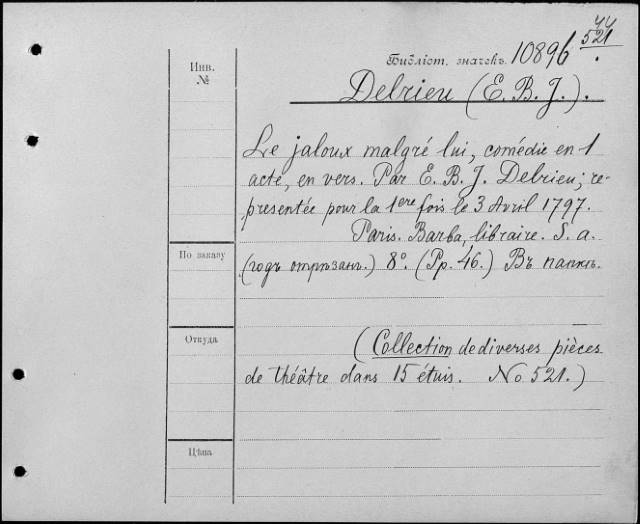 44
521
Инв. №
Библіот. значекъ. 10896
Delrieu (E. B. J.).
Le jaloux malgré lui, comédie en 1
acte, en vers. Par E. B. J. Delrieu; re-
présentée pour la 1ere fois le 3 Avril 1797.
Paris. Barba, libraire. S. a.
По заказу
(годъ отрѣзанъ.) 8°. (Pp. 46.) Въ папкѣ.
Откуда
(Collection de diverses pièces
de théâtre dans 15 étuis. No 521.)
Цѣна